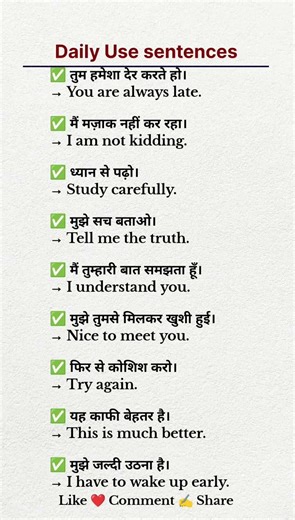 Daily Use sentences
✅ तुम हमेशा देर करते हो।
→ You are always late.
✅ मैं मज़ाक नहीं कर रहा।
→ I am not kidding.
✅ ध्यान से पढ़ो।
→ Study carefully.
✅ मुझे सच बताओ।
→ Tell me the truth.
✅ मैं तुम्हारी बात समझता हूँ।
→ I understand you.
✅ मुझे तुमसे मिलकर खुशी हुई।
→ Nice to meet you.
✅ फिर से कोशिश करो।
→ Try again.
✅ यह काफी बेहतर है।
→ This is much better.
✅ मुझे जल्दी उठना है।
→ I have to wake up early.
Like ❤️ Comment ✍️ Share